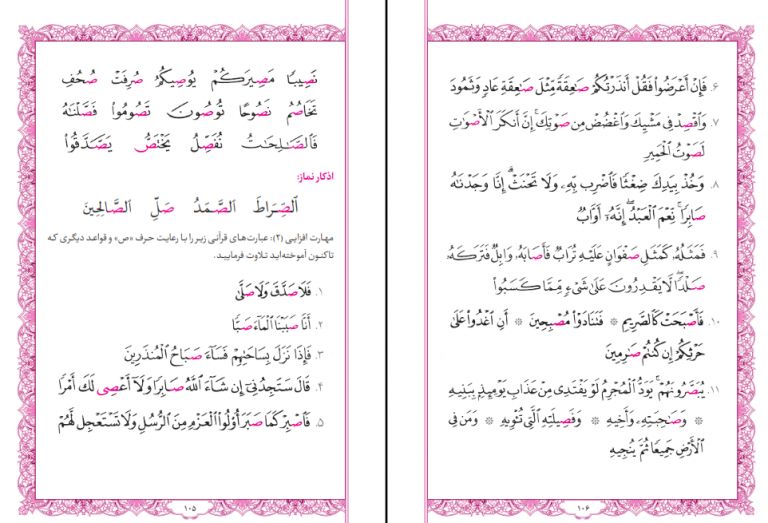 نَصِيبًا مَصِيرَكُمْ يُوصِيكُمُ صُرِفَتْ صُحُفِ
تَخَاصُمُ نَصُوحًا تُوصُونَ تَصُومُوا فَصَّلْنَهُ
فَالصَّـٰلِحَـٰتُ نُفَصِّلُ يَخْتَصُّ يَصَّدَّقُوا
اذکار نماز:
اَلصِّرَاطَ الصَّمَدُ صَلِّ الصَّالِحِينَ
مهارت افزایی (۲): عبارت‌های قرآنی زیر را با رعایت حرف «ص» و قواعد دیگری که
تاکنون آموخته‌اید تلاوت فرمایید.
۱. فَلَا صَدَّقَ وَلَا صَلَّىٰ
۲. أَنَّا صَبَبْنَا الْمَآءَ صَبًّا
۳. فَإِذَا نَزَلَ بِسَاحَتِهِمْ فَسَآءَ صَبَاحُ الْمُنذَرِينَ
۴. قَالَ سَتَجِدُنِي إِن شَآءَ اللَّهُ صَابِرًا وَلَا أَعْصِى لَكَ أَمْرًا
۵. فَاصْبِرْ كَمَا صَبَرَ أُوْلُوا الْعَزْمِ مِنَ الرُّسُلِ وَلَا تَسْتَعْجِل لَّهُمْ
۱۰۵
۶. فَإِنْ أَعْرَضُوا فَقُلْ أَنذَرْتُكُمْ صَـٰعِقَةً مِّثْلَ صَـٰعِقَةِ عَادٍ وَثَمُودَ
۷. وَاقْصِدْ فِى مَشْيِكَ وَاغْضُضْ مِن صَوْتِكَ ۚ إِنَّ أَنكَرَ الْأَصْوَٰتِ
لَصَوْتُ الْحَمِيرِ
۸. وَخُذْ بِيَدِكَ ضِغْثًا فَاضْرِب بِّهِ وَلَا تَحْنَثْ ۗ إِنَّا وَجَدْنَـٰهُ
صَابِرًا ۚ نِعْمَ الْعَبْدُ ۖ إِنَّهُ أَوَّابٌ
۹. فَمَثَلُهُ كَمَثَلِ صَفْوَانٍ عَلَيْهِ تُرَابٌ فَأَصَابَهُ وَابِلٌ فَتَرَكَهُ
صَلْدًا ۖ لَّا يَقْدِرُونَ عَلَىٰ شَىْءٍ مِّمَّا كَسَبُوا
۱۰. فَأَصْبَحَتْ كَالصَّرِيمِ ※ فَتَنَادَوْا مُصْبِحِينَ ※ أَنِ اغْدُوا عَلَىٰ
حَرْثِكُمْ إِن كُنتُمْ صَـٰرِمِينَ
۱۱. يُبَصَّرُونَهُمْ ۚ يَوَدُّ الْمُجْرِمُ لَوْ يَفْتَدِى مِنْ عَذَابِ يَوْمِئِذٍ بِبَنِيهِ
※ وَصَـٰحِبَتِهِ وَأَخِيهِ ※ وَفَصِيلَتِهِ الَّتِى تُـْٔوِيهِ ※ وَمَن فِى
الْأَرْضِ جَمِيعًا ثُمَّ يُنجِيهِ
۱۰۶